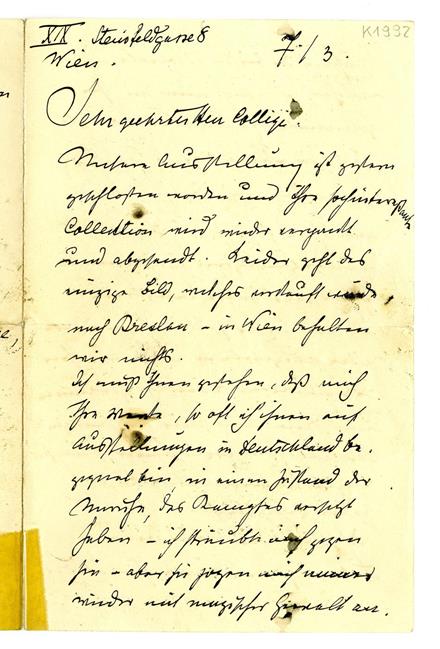 K1932
XIX. Steinfeldgasse 8
Wien.
7./3.
Sehr geehrter Herr College.
Unsere Ausstellung ist gestern
geschlossen worden und Ihre hochinteressante
Collection wird wieder verpackt
und abgesandt. Leider geht das
einzige Bild, welches verkauft wurde,
nach Breslau – in Wien behalten
wir nichts.
Ich muß Ihnen gestehen, daß mich
Ihre Werke, so oft ich ihnen auf
Ausstellungen in Deutschland be-
gegnet bin, in einen Zustand der
Unruhe, des Kampfes versetzt
haben – ich sträubte mich gegen
sie – aber sie zogen mich immer
wieder mit magischer Gewalt an.